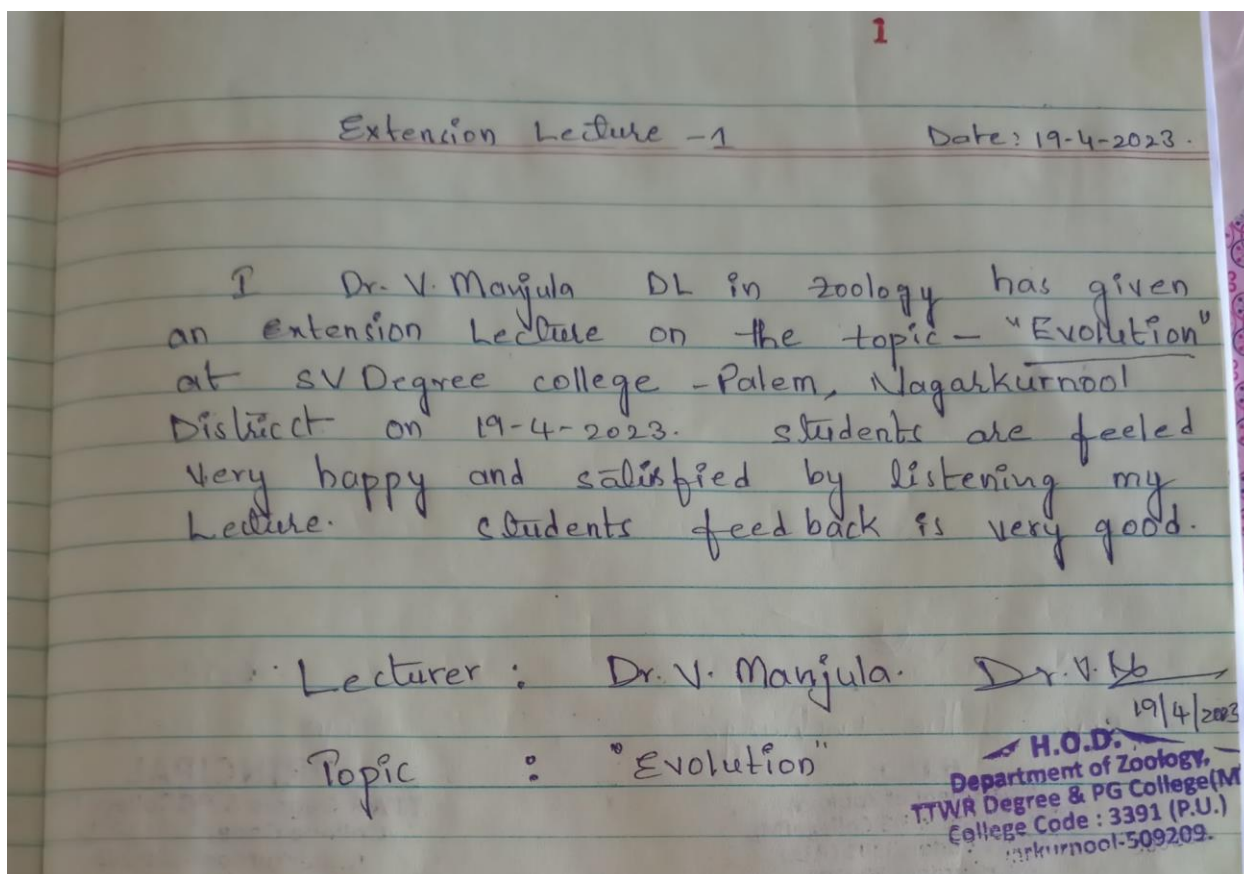 1
Extencion Lecture -1 Date: 19-4-2023.
I Dr. V. Manjula DL in zoology has given
an extension Lecture on the topic - "Evolution"
at SV Degree college - Palem, Nagarkurnool
Districct on 19-4-2023. students are feeled
very happy and satisfied by listening my
Lecture. students feed back is very good.
Lecturer : Dr. V. Manjula. Dr. V.
19/4/2023
Topic : "Evolution"
H.O.D.
Department of Zoology,
TTWR Degree & PG College(M
College Code : 3391 (P.U.)
arkurnool-509209.